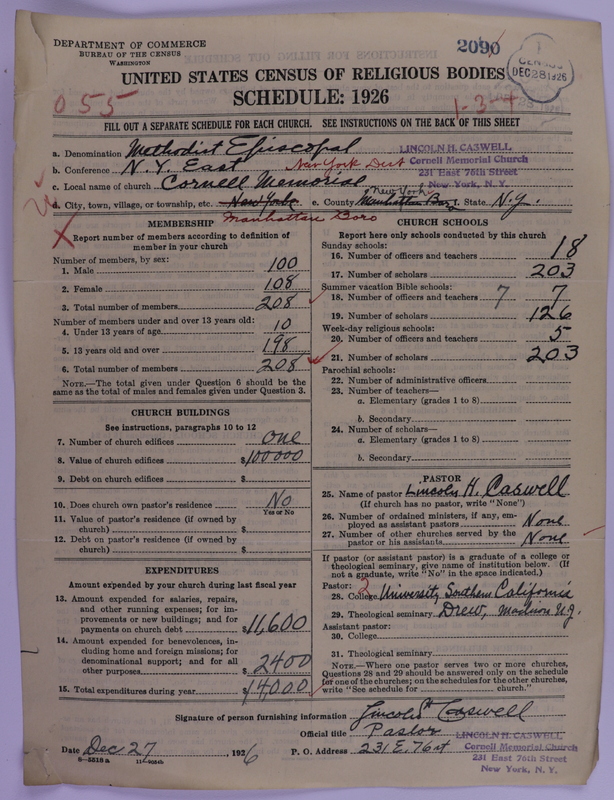 DEPARTMENT OF COMMERCE
BUREAU OF THE CENSUS
WASHINGTON
2090
CENSUS
DEC 28 1926
UNITED STATES CENSUS OF RELIGIOUS BODIES
SCHEDULE: 1926
055
1-3-4
FILL OUT A SEPARATE SCHEDULE FOR EACH CHURCH. SEE INSTRUCTIONS ON THE BACK OF THIS SHEET
a. Denomination Methodist Episcopal
LINCOLN H. CASWELL
Cornell Memorial Church
231 East 76th Street
New York, N. Y.
b. Conference N.Y. East New York Dist
c. Local name of church Cornell Memorial
d. City, town, village, or township, etc. New York e. County Manhattan New York f. State N.Y.
Manhattan Boro
MEMBERSHIP
Report number of members according to definition of member in your church
Number of members, by sex:
1. Male 100
2. Female 108
3. Total number of members 208
Number of members under and over 13 years old:
4. Under 13 years of age 10
5. 13 years old and over 198
6. Total number of members 208
NOTE.—The total given under Question 6 should be the same as the total of males and females given under Question 3.
CHURCH BUILDINGS
See instructions, paragraphs 10 to 12
7. Number of church edifices one
8. Value of church edifices $100000
9. Debt on church edifices $
10. Does church own pastor's residence No
Yes or No
11. Value of pastor's residence (if owned by church) $
12. Debt on pastor's residence (if owned by church) $
EXPENDITURES
Amount expended by your church during last fiscal year
13. Amount expended for salaries, repairs, and other running expenses; for improvements or new buildings; and for payments on church debt $11,600
14. Amount expended for benevolences, including home and foreign missions; for denominational support; and for all other purposes $2400
15. Total expenditures during year $14000
CHURCH SCHOOLS
Report here only schools conducted by this church
Sunday schools:
16. Number of officers and teachers 18
17. Number of scholars 203
Summer vacation Bible schools:
18. Number of officers and teachers 7 7
19. Number of scholars 126
Week-day religious schools:
20. Number of officers and teachers 5
21. Number of scholars 203
Parochial schools:
22. Number of administrative officers
23. Number of teachers—
a. Elementary (grades 1 to 8)
b. Secondary
24. Number of scholars—
a. Elementary (grades 1 to 8)
b. Secondary
PASTOR
25. Name of pastor Lincoln H. Caswell
(If church has no pastor, write "None")
26. Number of ordained ministers, if any, employed as assistant pastors None
27. Number of other churches served by the pastor or his assistants None
If pastor (or assistant pastor) is a graduate of a college or theological seminary, give name of institution below. (If not a graduate, write "No" in the space indicated.)
Pastor:
28. College University Southern California
29. Theological seminary Drew, Madison N.J.
Assistant pastor:
30. College
31. Theological seminary
NOTE.—Where one pastor serves two or more churches, Questions 28 and 29 should be answered only on the schedule for one of the churches; on the schedules for the other churches, write "See schedule for church."
Signature of person furnishing information Lincoln H Caswell
Official title Pastor
Date Dec 27, 1926
P. O. Address 231 E. 76 st
LINCOLN H. CASWELL
Cornell Memorial Church
231 East 76th Street
New York, N. Y.
8—5518a